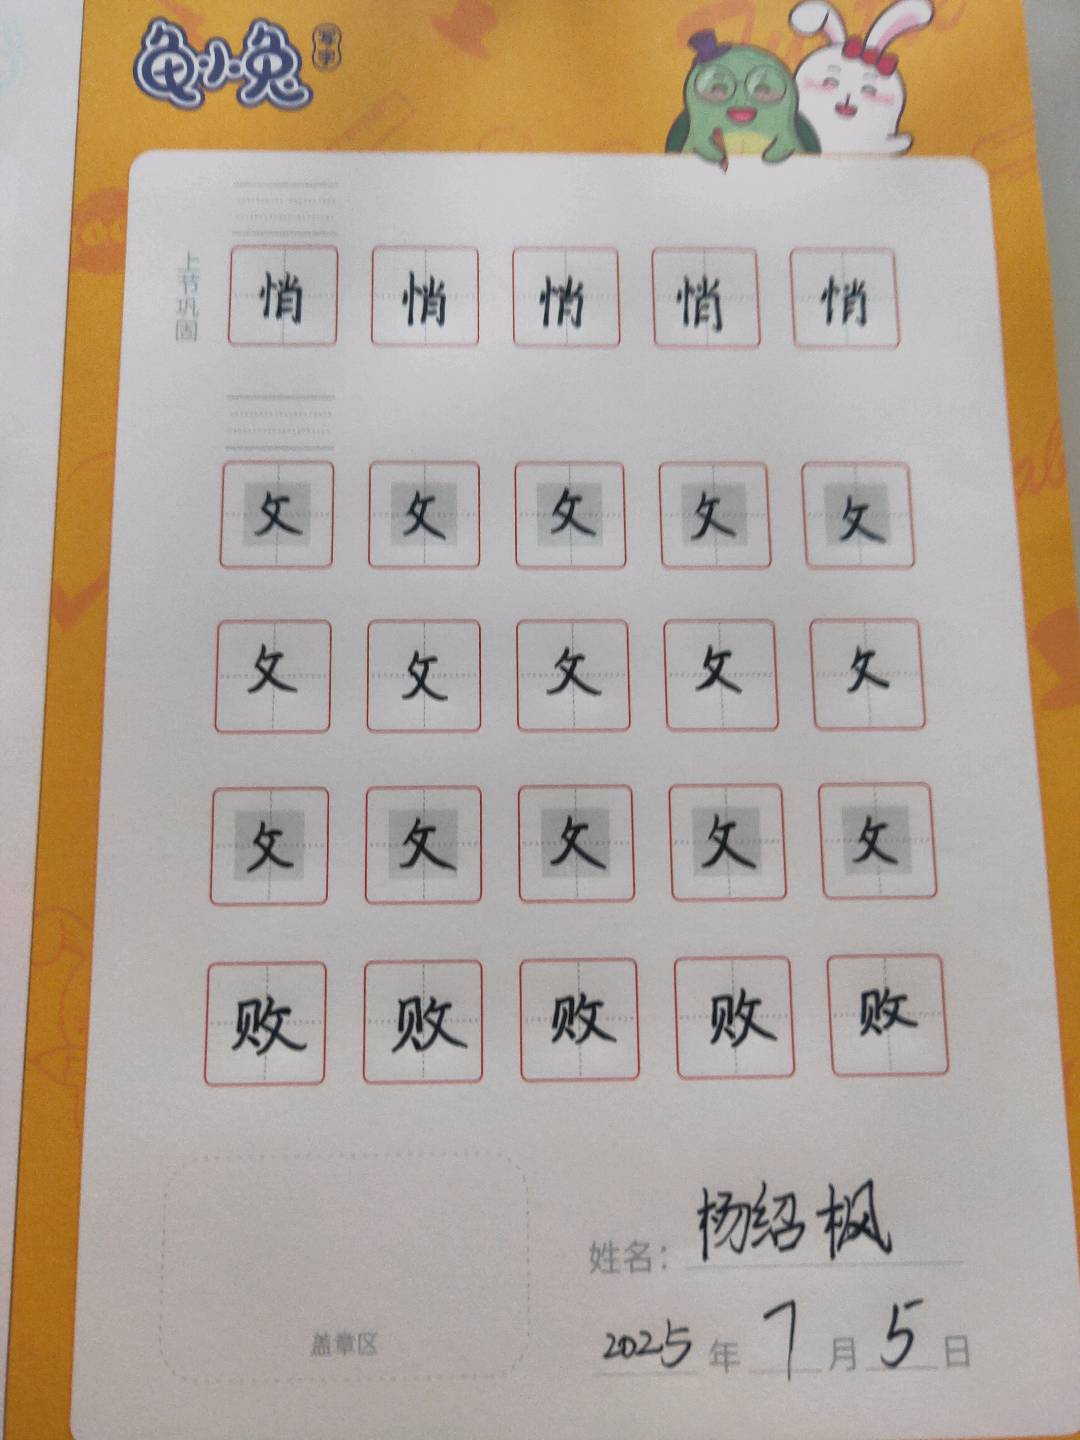 龟小兔 写字
上节巩固
悄 悄 悄 悄 悄
攵 攵 攵 攵 攵
攵 攵 攵 攵 攵
攵 攵 攵 攵 攵
败 败 败 败 败
姓名：杨绍枫
2025年7月5日
盖章区